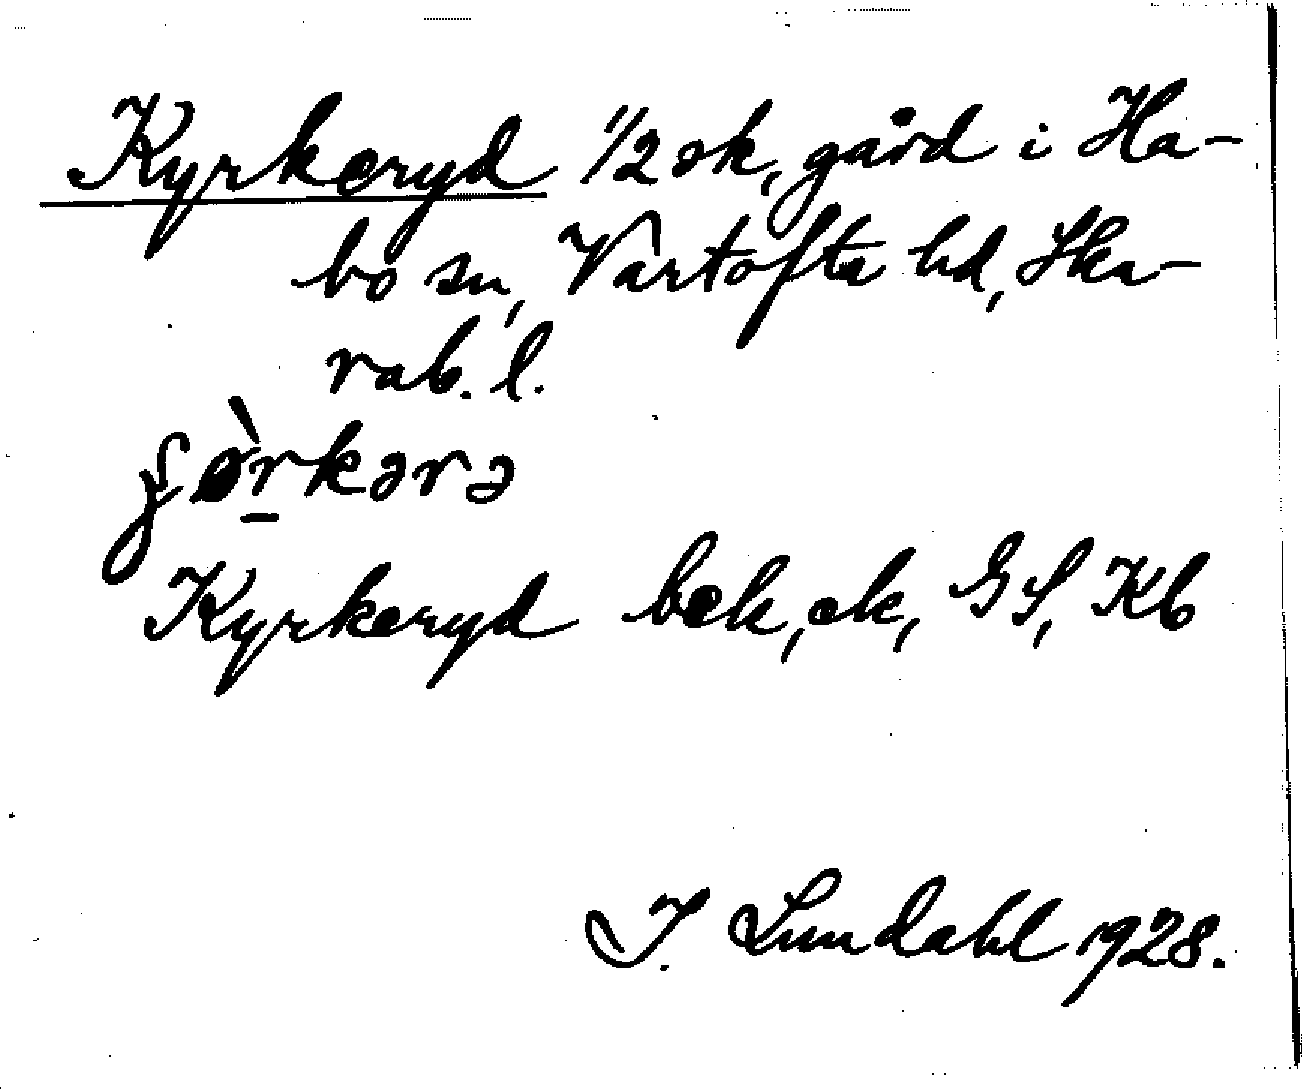 Kyrkeryd 1/2 sk, gård i Ha-
bo sn, Vartofta hd, Ska-
rab. l.
Kyrkeryd bek, ek, GS, Kb
I. Lundahl 1928.